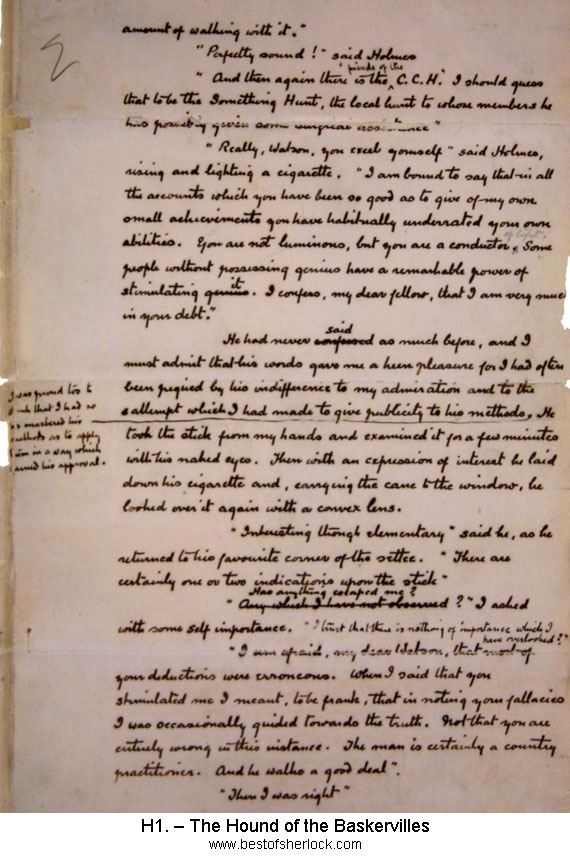 2
amount of walking with it."
"Perfectly sound!" said Holmes
'friends of the
"And then again there is the C.C.H.' I should guess
that to be the Something Hunt, the local hunt to whose members he
has possibly given some surgical assistance"
"Really, Watson, you excel yourself" said Holmes,
rising and lighting a cigarette. "I am bound to say that in all
the accounts which you have been so good as to give of my own
small achievements you have habitually underrated your own
of light.
abilities. You are not luminous, but you are a conductor. Some
people without possessing genius have a remarkable power of
it
stimulating genius. I confess, my dear fellow, that I am very much
in your debt."
said
He had never confessed as much before, and I
must admit that his words gave me a keen pleasure for I had often
been piqued by his indifference to my admiration and to the
attempt which I had made to give publicity to his methods. He
I was proud too t
think that I had so
mastered his
methods as to apply
them in a way which
earned his approval.
took the stick from my hands and examined it for a few minutes
with his naked eyes. Then with an expression of interest he laid
down his cigarette and, carrying the cane to the window, he
looked over it again with a convex lens.
"Interesting though elementary" said he, as he
returned to his favourite corner of the settee. "There are
certainly one or two indications upon the stick"
Has anything escaped me?
"Any which I have not observed?" I asked
with some self importance. "I trust that there is nothing of importance which I
have overlooked?"
"I am afraid, my dear Watson, that most of
your deductions were erroneous. When I said that you
stimulated me I meant, to be frank, that in noting your fallacies
I was occasionally guided towards the truth. Not that you are
entirely wrong in this instance. The man is certainly a country
practitioner. And he walks a good deal".
"Then I was right"
H1. – The Hound of the Baskervilles
www.bestofsherlock.com